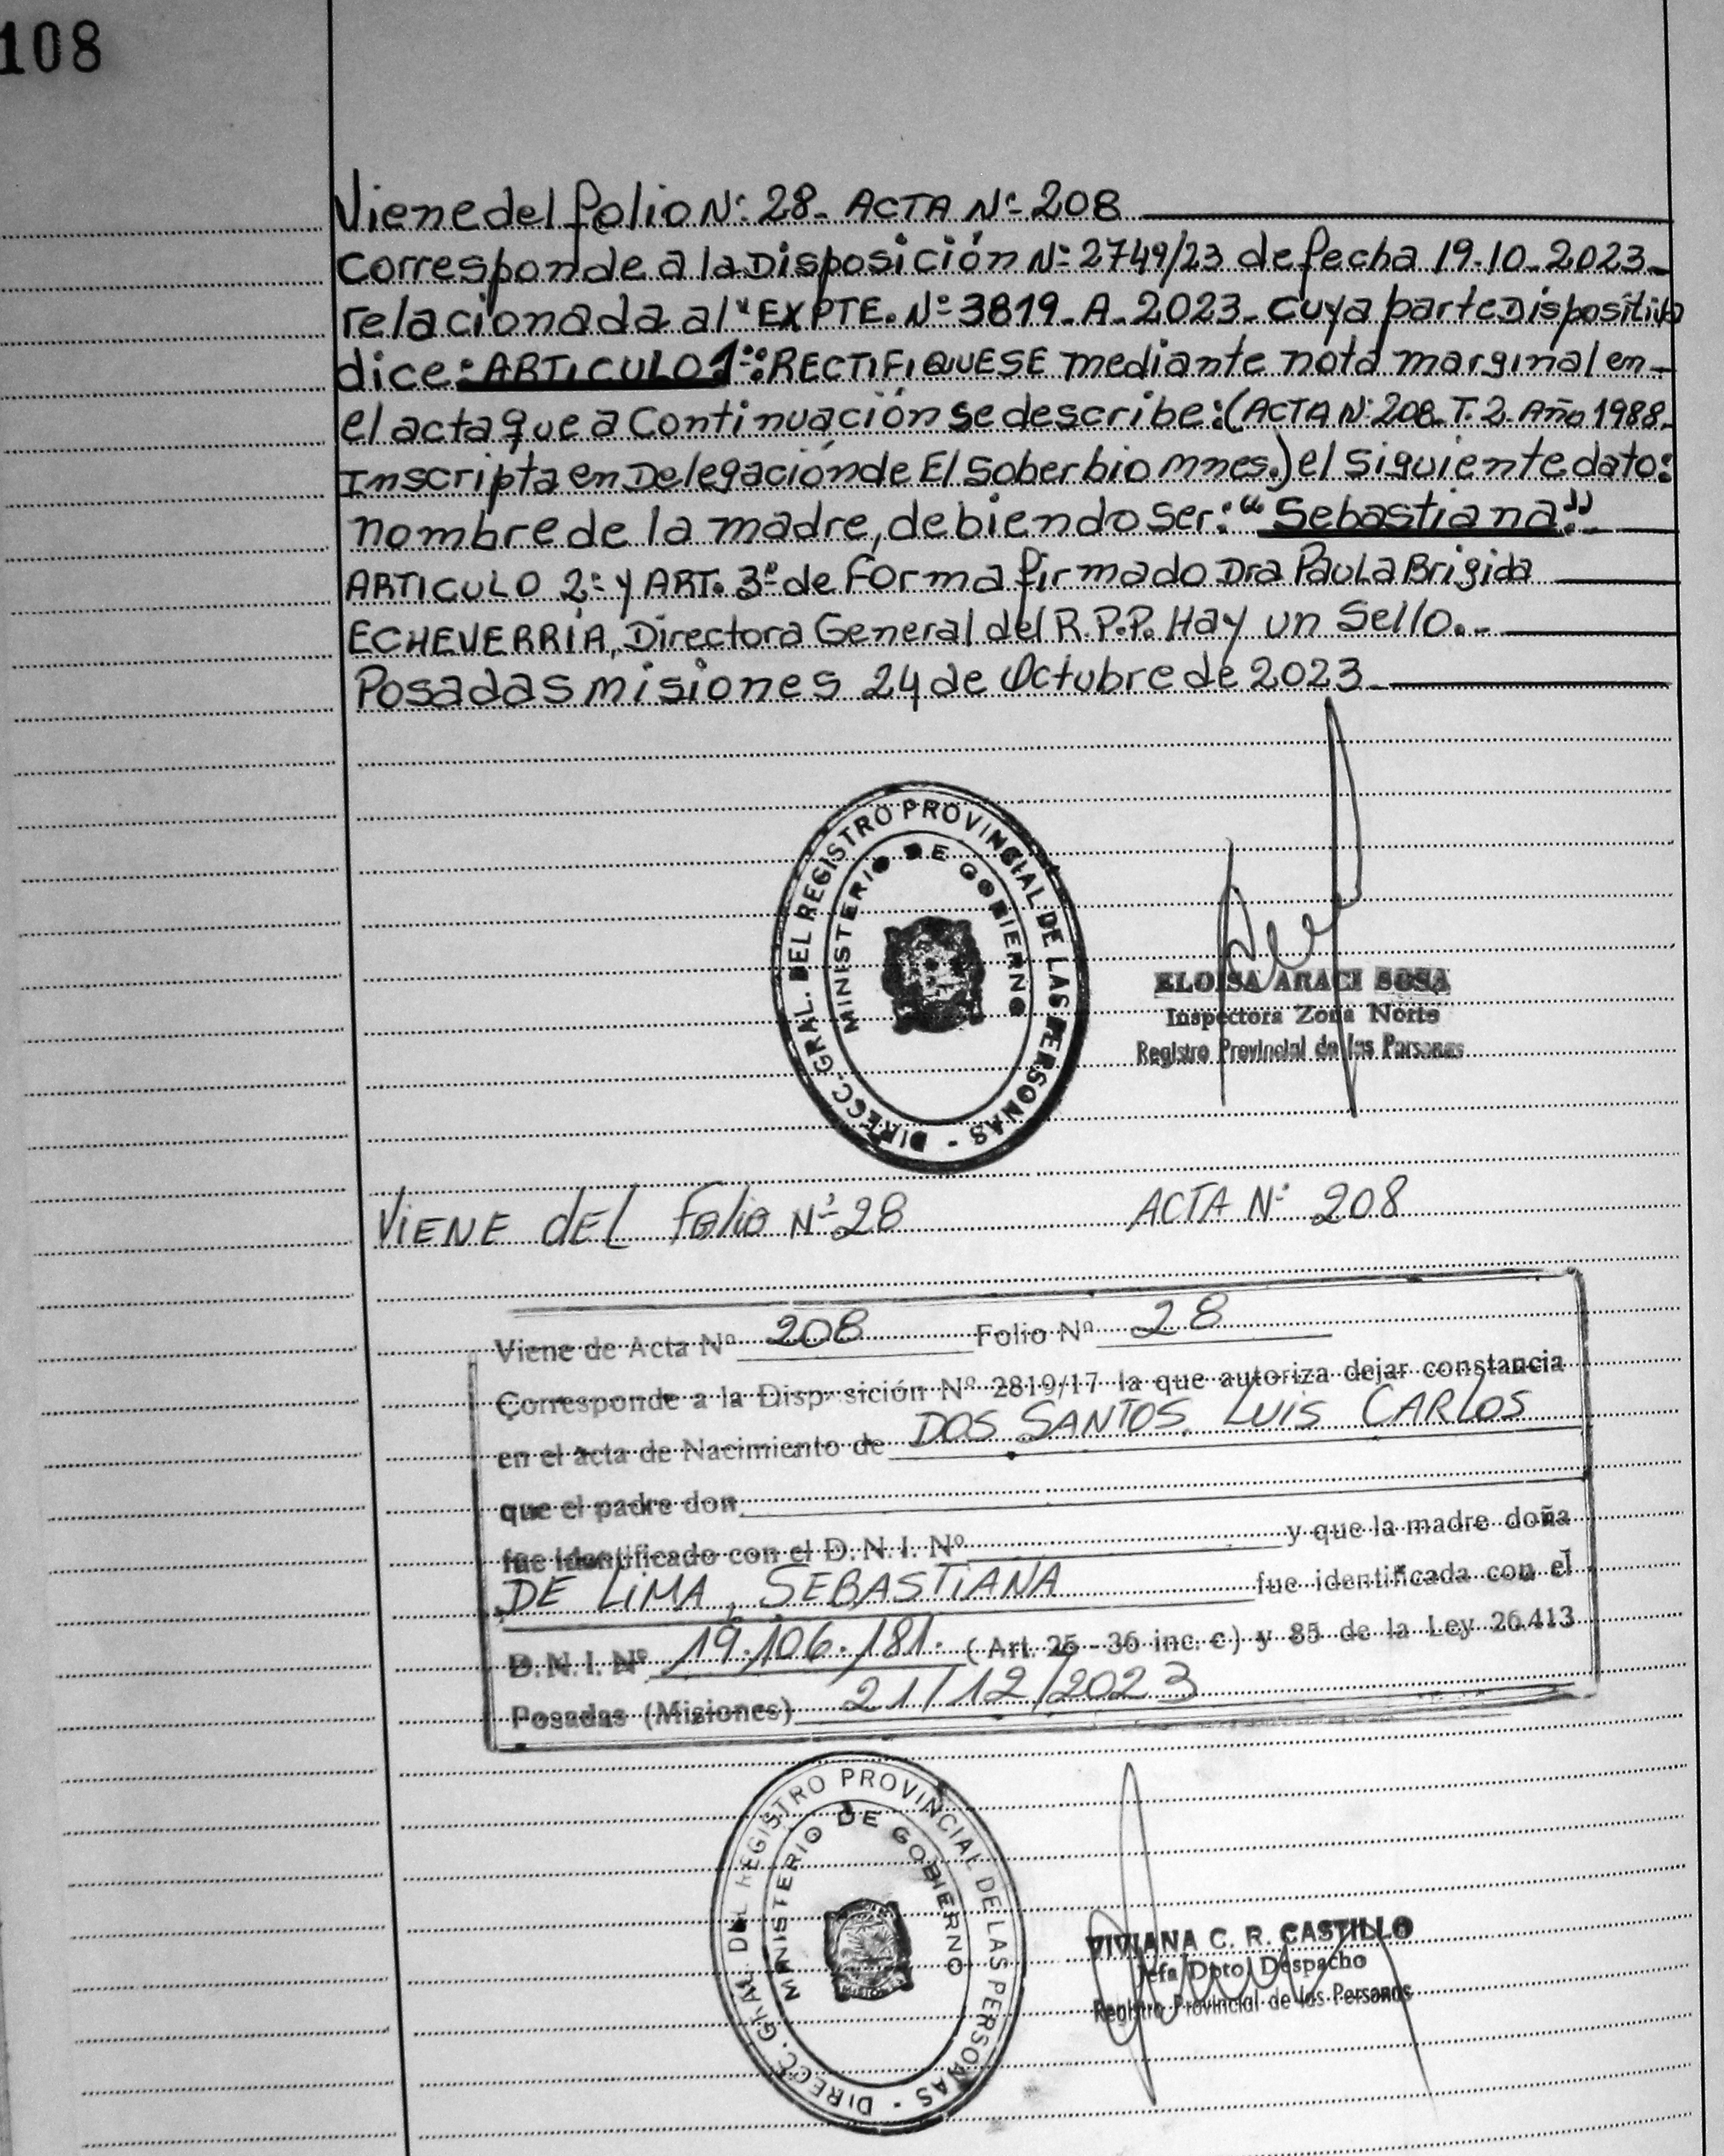 108
Viene del folio Nº 28. ACTA Nº 208
Corresponde a la Disposición Nº 2749/23 de fecha 19.10.2023.
relacionada al "EXPTE. Nº 3819.A.2023. Cuya parte Dispositiva
dice: ARTICULO 1º: RECTIFIQUESE mediante nota marginal en
el acta que a Continuación se describe: (ACTA Nº 208. T. 2. Año 1988.
Inscripta en Delegación de El Soberbio mnes.) el siguiente dato:
nombre de la madre, debiendo ser: "Sebastiana"
ARTICULO 2º y ART. 3º de Forma firmado Dra Paula Brigida
ECHEVERRIA, Directora General del R.P.P. Hay un Sello.-
Posadas misiones 24 de Octubre de 2023
DIRECC. GRAL. DEL REGISTRO PROVINCIAL DE LAS PERSONAS -
MINISTERIO DE GOBIERNO
ELOISA ARACI SOSA
Inspectora Zona Norte
Registro Provincial de las Personas
VIENE DEL Folio Nº 28 ACTA Nº 208
Viene de Acta Nº 208 Folio Nº 28
Corresponde a la Disp sición Nº 2819/17 la que autoriza dejar constancia
en el acta de Nacimiento de DOS SANTOS, LUIS CARLOS
que el padre don
fue identificado con el D. N. I. Nº y que la madre doña
DE LIMA, SEBASTIANA fue identificada con el
D. N. I. Nº 19.106.181. ( Art. 25 - 36 inc. c ) y 85 de la Ley 26.413
Posadas (Misiones) 21/12/2023
DIRECC. GRAL. DEL REGISTRO PROVINCIAL DE LAS PERSONAS -
MINISTERIO DE GOBIERNO
VIVIANA C. R. CASTILLO
Jefa Dpto. Despacho
Registro Provincial de las Personas